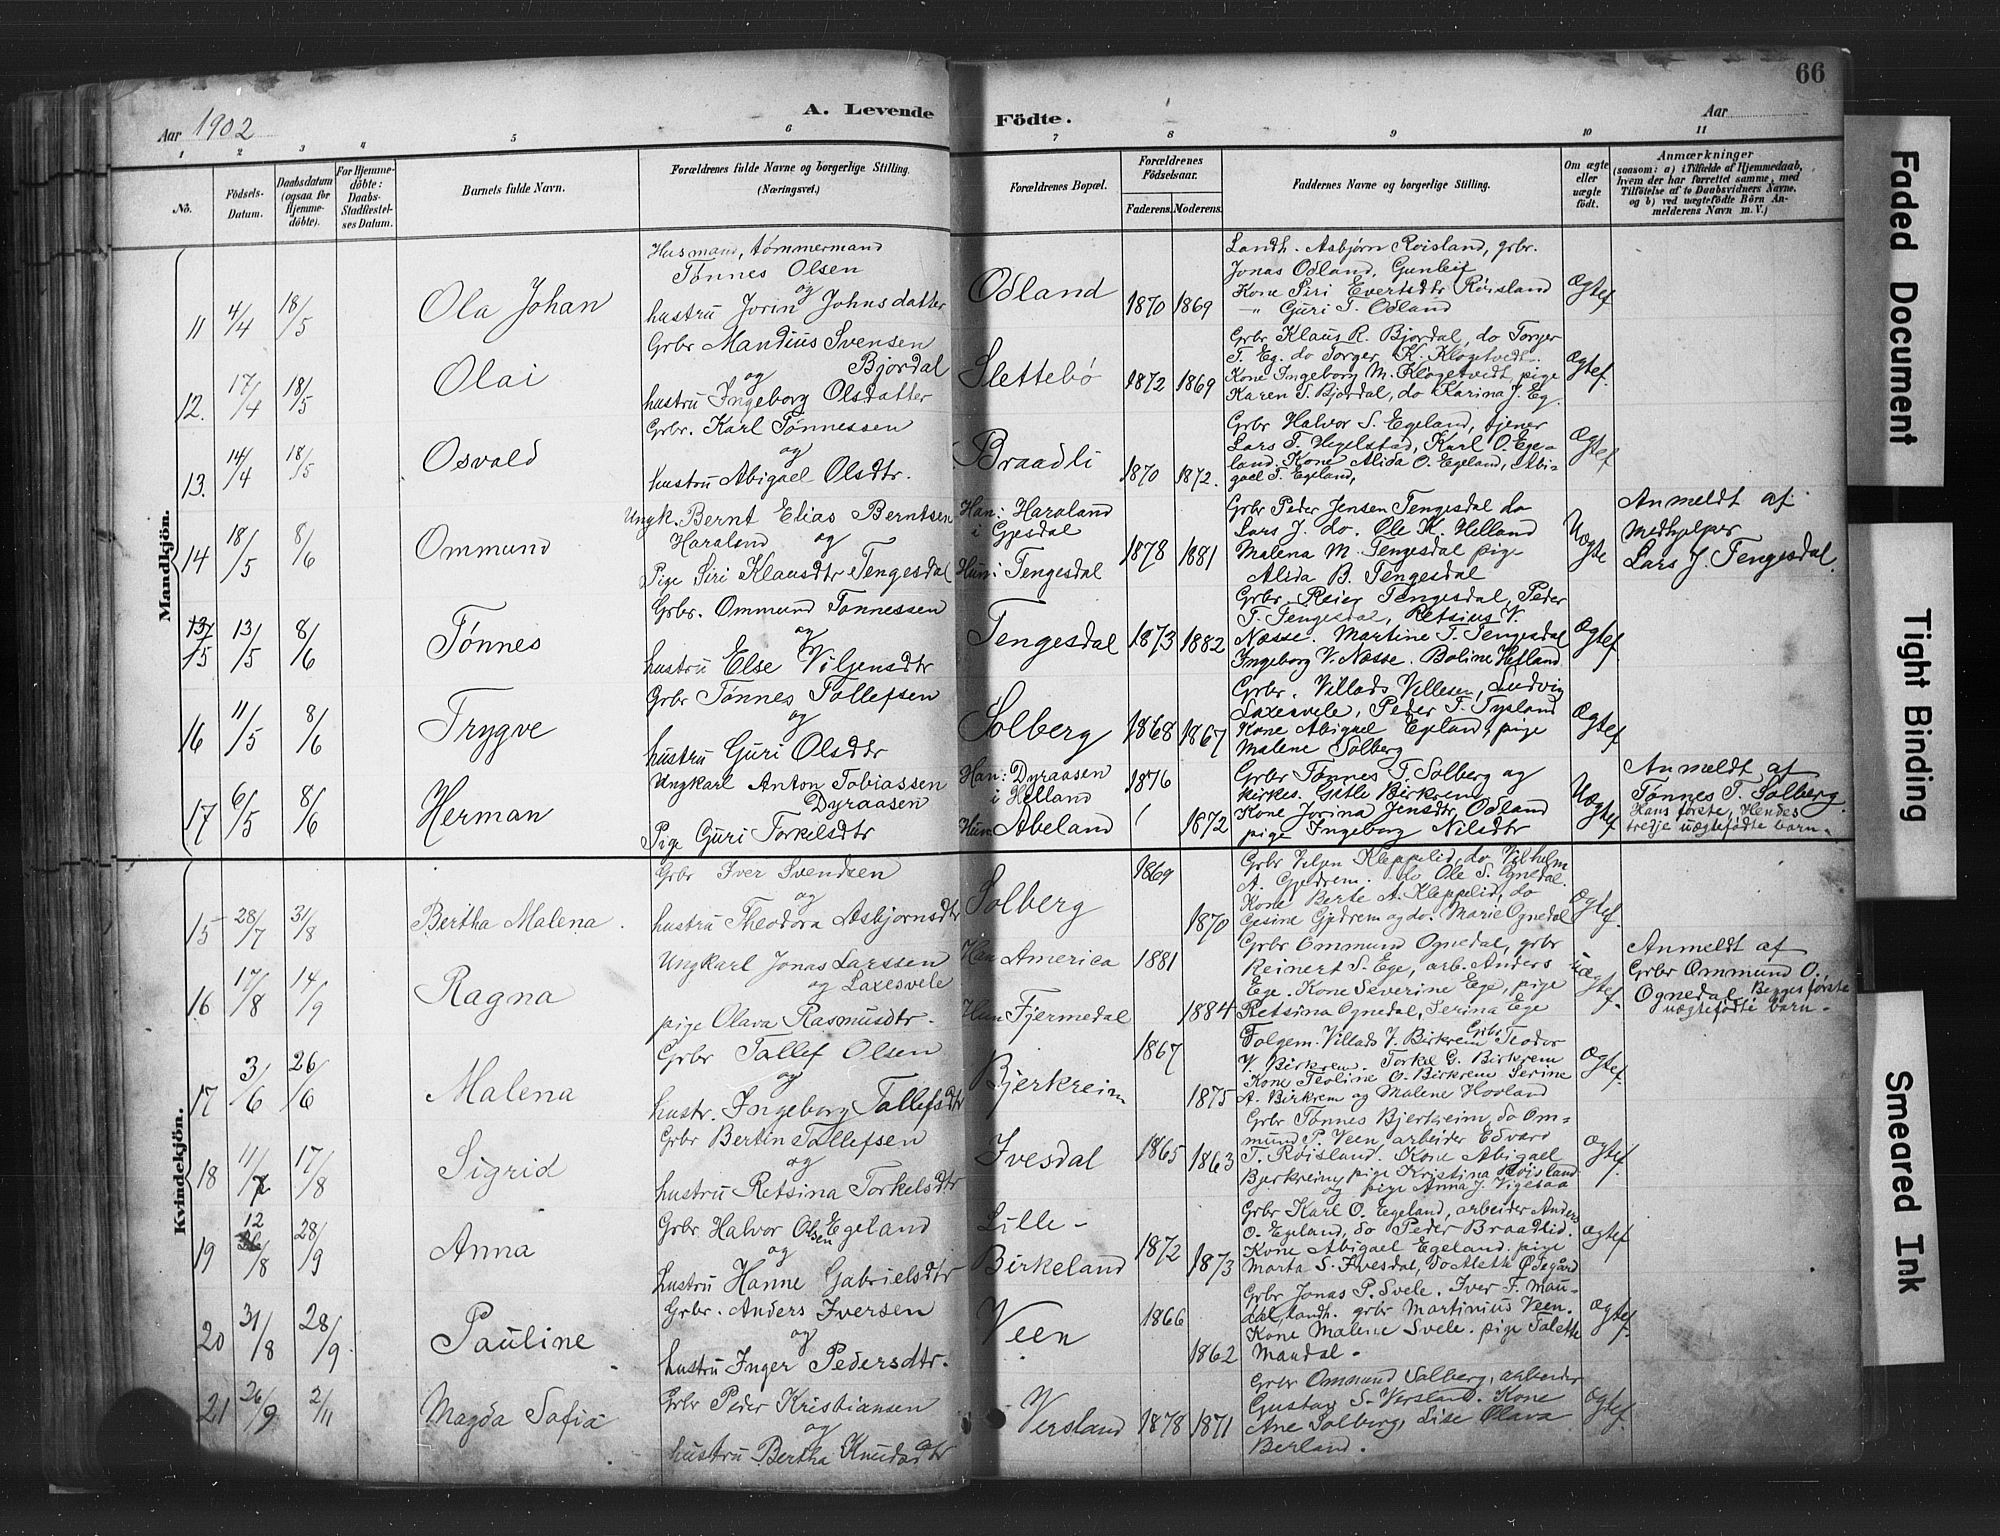 66
Aar 1902
A. Levende
Födte.
Aar
1 2 3 4 5 6 7 8 9 10 11
No.
Födsels-Datum.
Daabsdatum (ogsaa for Hjemmedöbte).
For Hjemmedöbte: Daabs-Stadfæstelses Datum.
Barnets fulde Navn.
Forældrenes fulde Navne og borgerlige Stilling.
(Næringsvei.)
Forældrenes Bopæl.
Forældrenes Födselsaar.
Faderens. Moderens.
Faddernes Navne og borgerlige Stilling.
Om ægte eller uægte födt.
Anmærkninger
(saasom: a) i Tilfælde af Hjemmedaab, hvem der har forrettet samme, med Tilföielse af to Daabsvidners Navne, og b) ved uægtefödte Börn Anmelderens Navn m. V.)
Mandkjön.
11 4/4 18/5
Ola Johan
Husmand, tømmermand
Tønnes Olsen
og
hustru Jorin Johnsdatter
Odland
1870 1869
Landh. Asbjørn Røisland, grbr.
Jonas Odland, Gunleif
Kone Siri Evertsdtr Röisland
-"- Guri T. Odland
Ægtef.
12. 17/4 18/5
Olai
Grbr Mandius Svensen
Bjordal
og
hustru Ingeborg Olsdatter
Slettebö
1872 1869
Grbr Klaus R. Bjordal, do Torger
T. Eg. do Torger K. Klogetvedt.
Kone Ingeborg M. Klogetvedt, pige
Karen S. Bjordal, do Karina J. Eg.
Ægtef.
13. 14/4 18/5
Osvald
Grbr. Karl Tönnessen
og
hustru Abigael Olsdtr.
Braadli
1870 1872.
Grbr Halvor S. Egeland, tjener
Lars T. Hegelstad, Karl O. Ege-
land, Kone Alida O. Egeland, Abi-
gael T. Egeland,
Ægtef
14 18/5 8/6
Ommund
Ungk. Bernt Elias Berntsen
Haraland og
Pige Siri Klausdtr Tengesdal
Han: Haraland
i Gjesdal
Hun: Tengesdal
1878 1881
Grbr Peder Jensen Tengesdal do
Lars J. do. Ole K. Helland
Malena M. Tengesdal pige
Alida B. Tengesdal
Uægte
Anmeldt af
Medhjelper
Lars J. Tengesdal.
15 13/5 8/6
Tønnes
Grbr. Ommund Tønnessen
og
hustru Else Viljensdtr
Tengesdal
1873 1882
Grbr. Reier Tengesdal, Peder
T. Tengesdal, Retsius V.
Næsse. Martine T. Tengesdal
Ingeborg V. Næsse. Boline Helland
Ægtef.
16 11/5 8/6
Trygve
Grbr Tönnes Tollefsen
og
hustru Guri Olsdtr
Solberg
1868 1867
Grbr. Villads Villesen, Ludvig
Laxesvele, Peder T. Tysland
Kone Abigael Egeland, pige
Malene Solberg
Ægtef.
17 6/5 8/6
Herman
Ungkarl Anton Tobiassen
Dyraasen
Pige Guri Torkelsdtr
Han: Dyraasen
i Helland
Hun: Abeland
1876
1872
Grbr Tønnes T. Solberg og
kirkes. Gitle Birkrem
Kone Jorina Jensdtr Odland
pige Ingeborg Nilsdtr
Uægtef.
Anmeldt af
Tønnes T. Solberg.
Hans første, Hendes
tredje uægtefødte barn.
Kvindekjön.
15 28/7 31/8
Bertha Malena.
Grbr Iver Svendsen
og
hustru Theodora Asbjornsdtr
Solberg
1869
1870
Grbr Viljen Kleppelid, do Vilhelm
A. Gjedrem. do Ole S. Ognedal.
Kone Berte A. Kleppelid, do
Gesine Gjedrem og do. Marie Ognedal
Ægtef.
16 17/8 14/9
Ragna
Ungkarl Jonas Larssen
og Laxesvele
pige Olava Rasmusdtr.
Han America
Hun Fjermedal
1881
1884
Grbr Ommund Ognedal, grbr
Reinert S. Ege, arb. Anders
Ege. Kone Severine Ege, pige
Retsina Ognedal, Serina Ege
uægtef.
Anmeldt af
Grbr Ommund O.
Ognedal. Begges første
uægtefødte barn.
17 3/6 26/6
Malena
Grbr Tallef Olsen
og
hustr. Ingeborg Tallefsdtr
Bjerkreim
1867
1875
Folgem. Villads V. Birkrem Grbr Teodor
V. Birkrem. Torkel G. Birkrem
Kone Teoline O. Birkrem Serine
A. Birkrem og Malene Hovland
Ægtef.
18 11/7 17/8
Sigrid
Grbr Bertin Tallefsen
og
hustru Retsina Torkelsdtr
Ivesdal
1865 1863
Grbr Tønnes Bjerkreim, do Om-
mund P. Veen, arbeider Edvard
T. Røisland. Kone Abigael
Bjerkreim, pige Kristina Røisland
og pige Anna J. Vigesaa
Ægtef.
19 12/8 28/9
Anna
Grbr Halvor Olsen Egeland
og
hustru Hanne Gabrielsdtr
Lille-
Birkeland
1872 1873
Grbr Karl O. Egeland, arbeider Anders
O. Egeland, do Peder Braadlid.
Kone Abigael Egeland. pige
Marta S. Ivesdal, do Aleth Ødegård
Ægtef
20 31/8 28/9
Pauline
Grbr. Anders Iversen
og
hustru Inger Pedersdtr.
Veen
1866
1862
Grbr Jonas P. Svele. Iver T. Mau-
dal, landh. grbr Martinius Veen.
Kone Malene Svele. pige Talette
Maudal.
Ægtef.
21 26/9 2/11
Magda Sofia
Grbr Peder Kristiansen
og
hustru Bertha Knudsdtr
Versland
1878 1871
Grbr Ommund Solberg, arbeider
Gustav S. Versland. Kone
Ane Solberg, Lise Olava
Berland.
Ægtef.
Faded Document
Tight Binding
Smeared Ink